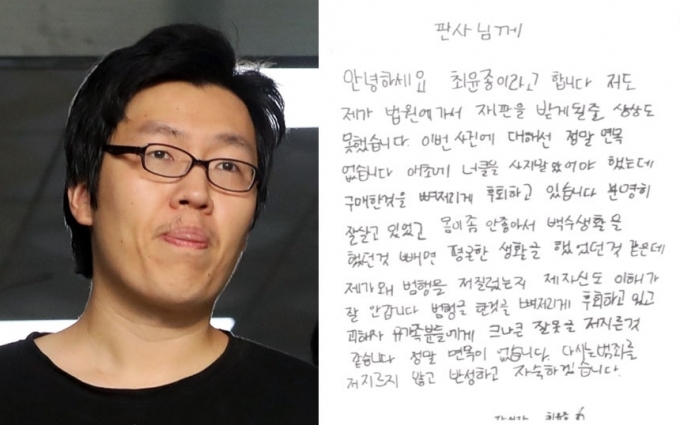 판사님께
안녕하세요 최윤종이라고 합니다 저도
제가 법원에가서 재판을 받게될줄 상상도
못했습니다. 이번 사건에 대해선 정말 면목
없습니다 애초에 너클을 사지말았어야 했는데
구매한것을 뼈저리게 후회하고 있습니다 분명히
잘살고 있었고 몸이좀 안좋아서 백수생활을
했던것 빼면 평균한 생활을 했었던것 같은데
제가왜 범행을 저질렀는지 제자신도 이해가
잘 안갑니다 범행을 한것을 뼈저리게 후회하고 있고
피해자 유가족분들에게 크나큰 잘못을 저지른것
같습니다 정말 면목이 없습니다. 다시는범죄를
저지르지 않고 반성하고 자숙하겠습니다.
최윤종